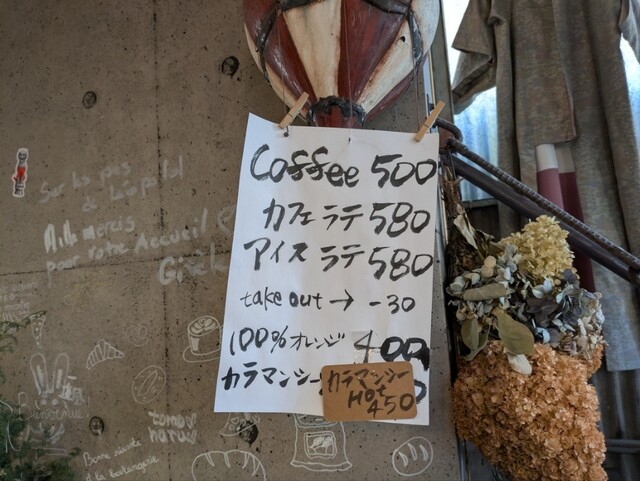 Coffee 500
カフェラテ 580
アイスラテ 580
take out → -30
100%オレンジ 400
カラマンシー
カラマンシー
HOT
450
Sur les pas
de Léopold
Mille mercis
pour votre Accueil
Bienvenue!
tomo
haru
Bonne
à la boulangerie